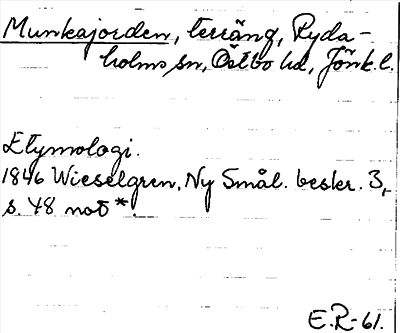 Munkajorden, terräng, Ryda-
holms sn, Östbo hd, Jönk.l.
Etymologi.
1846 Wieselgren, Ny Smål. beskr. 3,
s. 48 not *.
E.R-61.